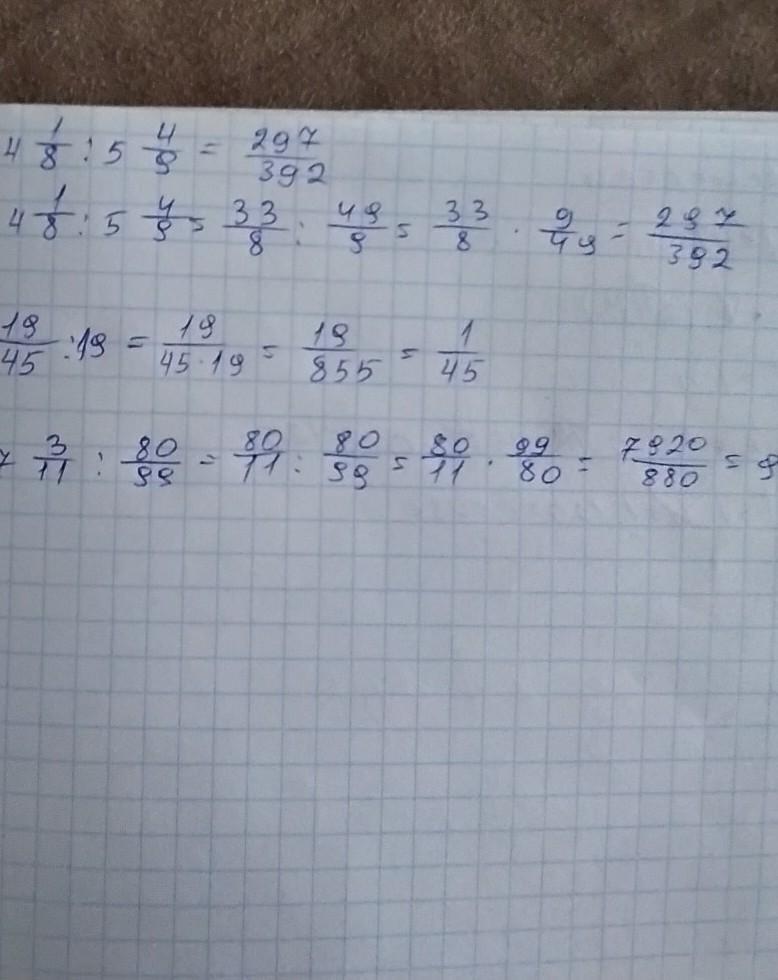 4 1/8 : 5 4/9 = 297/392
4 1/8 : 5 4/9 = 33/8 : 49/9 = 33/8 · 9/49 = 297/392
19/45 : 19 = 19/45·19 = 19/855 = 1/45
7 3/11 : 80/99 = 80/11 : 80/99 = 80/11 · 99/80 = 7920/880 = 9